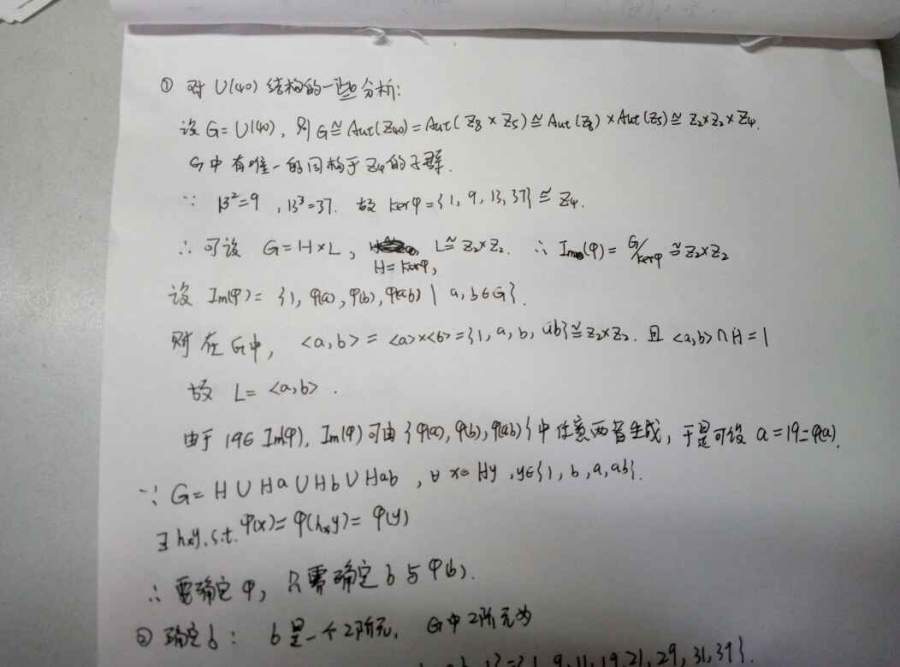 ① 对 U(40) 结构的一些分析:
设 G=U(40), 则 G≅Aut(Z₄₀)=Aut(Z₈×Z₅)≅Aut(Z₈)×Aut(Z₅)≅Z₂×Z₂×Z₄.
G中有唯一的同构于Z₄的子群.
∵ 13²=9, 13³=37. 故 kerφ={1, 9, 13, 37}≅Z₄.
∴可设 G=H×L, L≅Z₂×Z₂. ∴ Im(φ)=G/kerφ≅Z₂×Z₂
H=kerφ,
设 Im(φ)={1, φ(a), φ(b), φ(ab) | a,b∈G}.
则在G中, <a,b>=<a>×<b>={1, a, b, ab}≅Z₂×Z₂. 且 <a,b>∩H=1
故 L=<a,b>.
由于 19∈Im(φ), Im(φ)可由{φ(a), φ(b), φ(ab)}中任意两者生成, 于是可设 a=19=φ(a).
∵ G=H∪Ha∪Hb∪Hab, ∀x∈Hy, y∈{1, b, a, ab}.
∃ s.t. φ(x)=φ(hₓy)=φ(y)
∴ 要确定φ, 只需确定b与φ(b).
② 确定b: b是一个2阶元. G中2阶元为
={1, 9, 11, 19, 21, 29, 31, 39}.